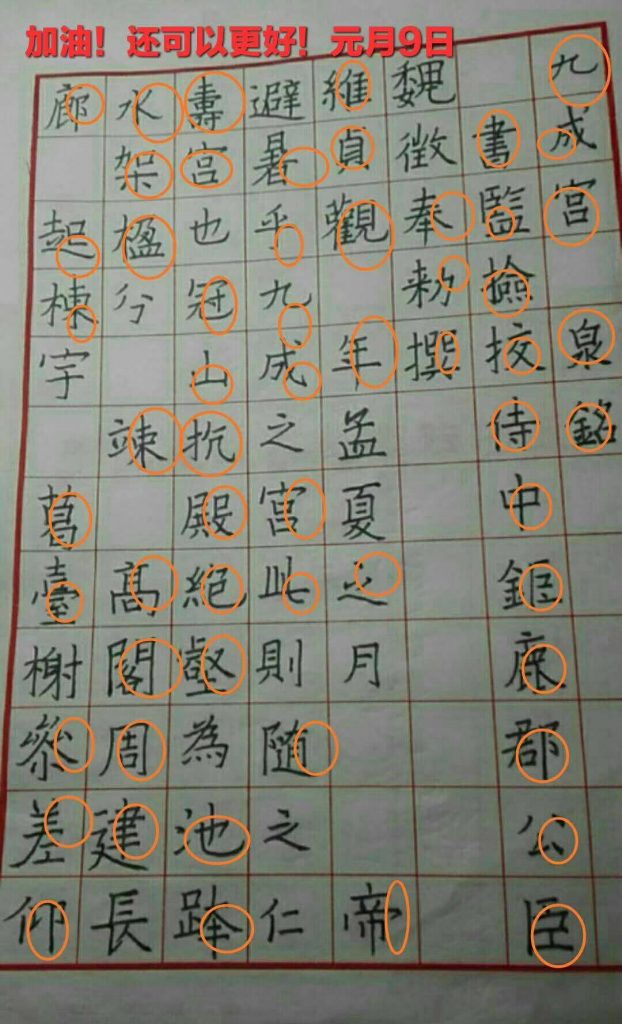 加油！还可以更好！元月9日
九成宫 泉銘
書監撿挍侍中鉅鹿郡公臣
魏徵奉勑撰
維貞觀 年孟夏之月 帝
避暑乎九成之宫此則隨之仁
壽宫也冠山抗殿絕壑為池跨
水架楹分 竦 髙閣周建長
廊 起棟宇 葛臺榭參差仰